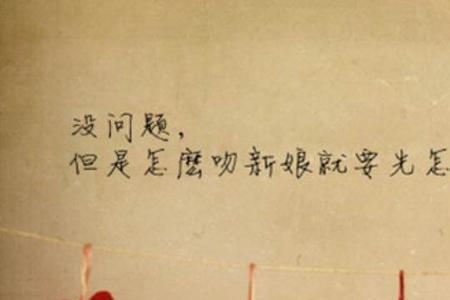 没问题，
但是怎麽吻新娘就要光怎